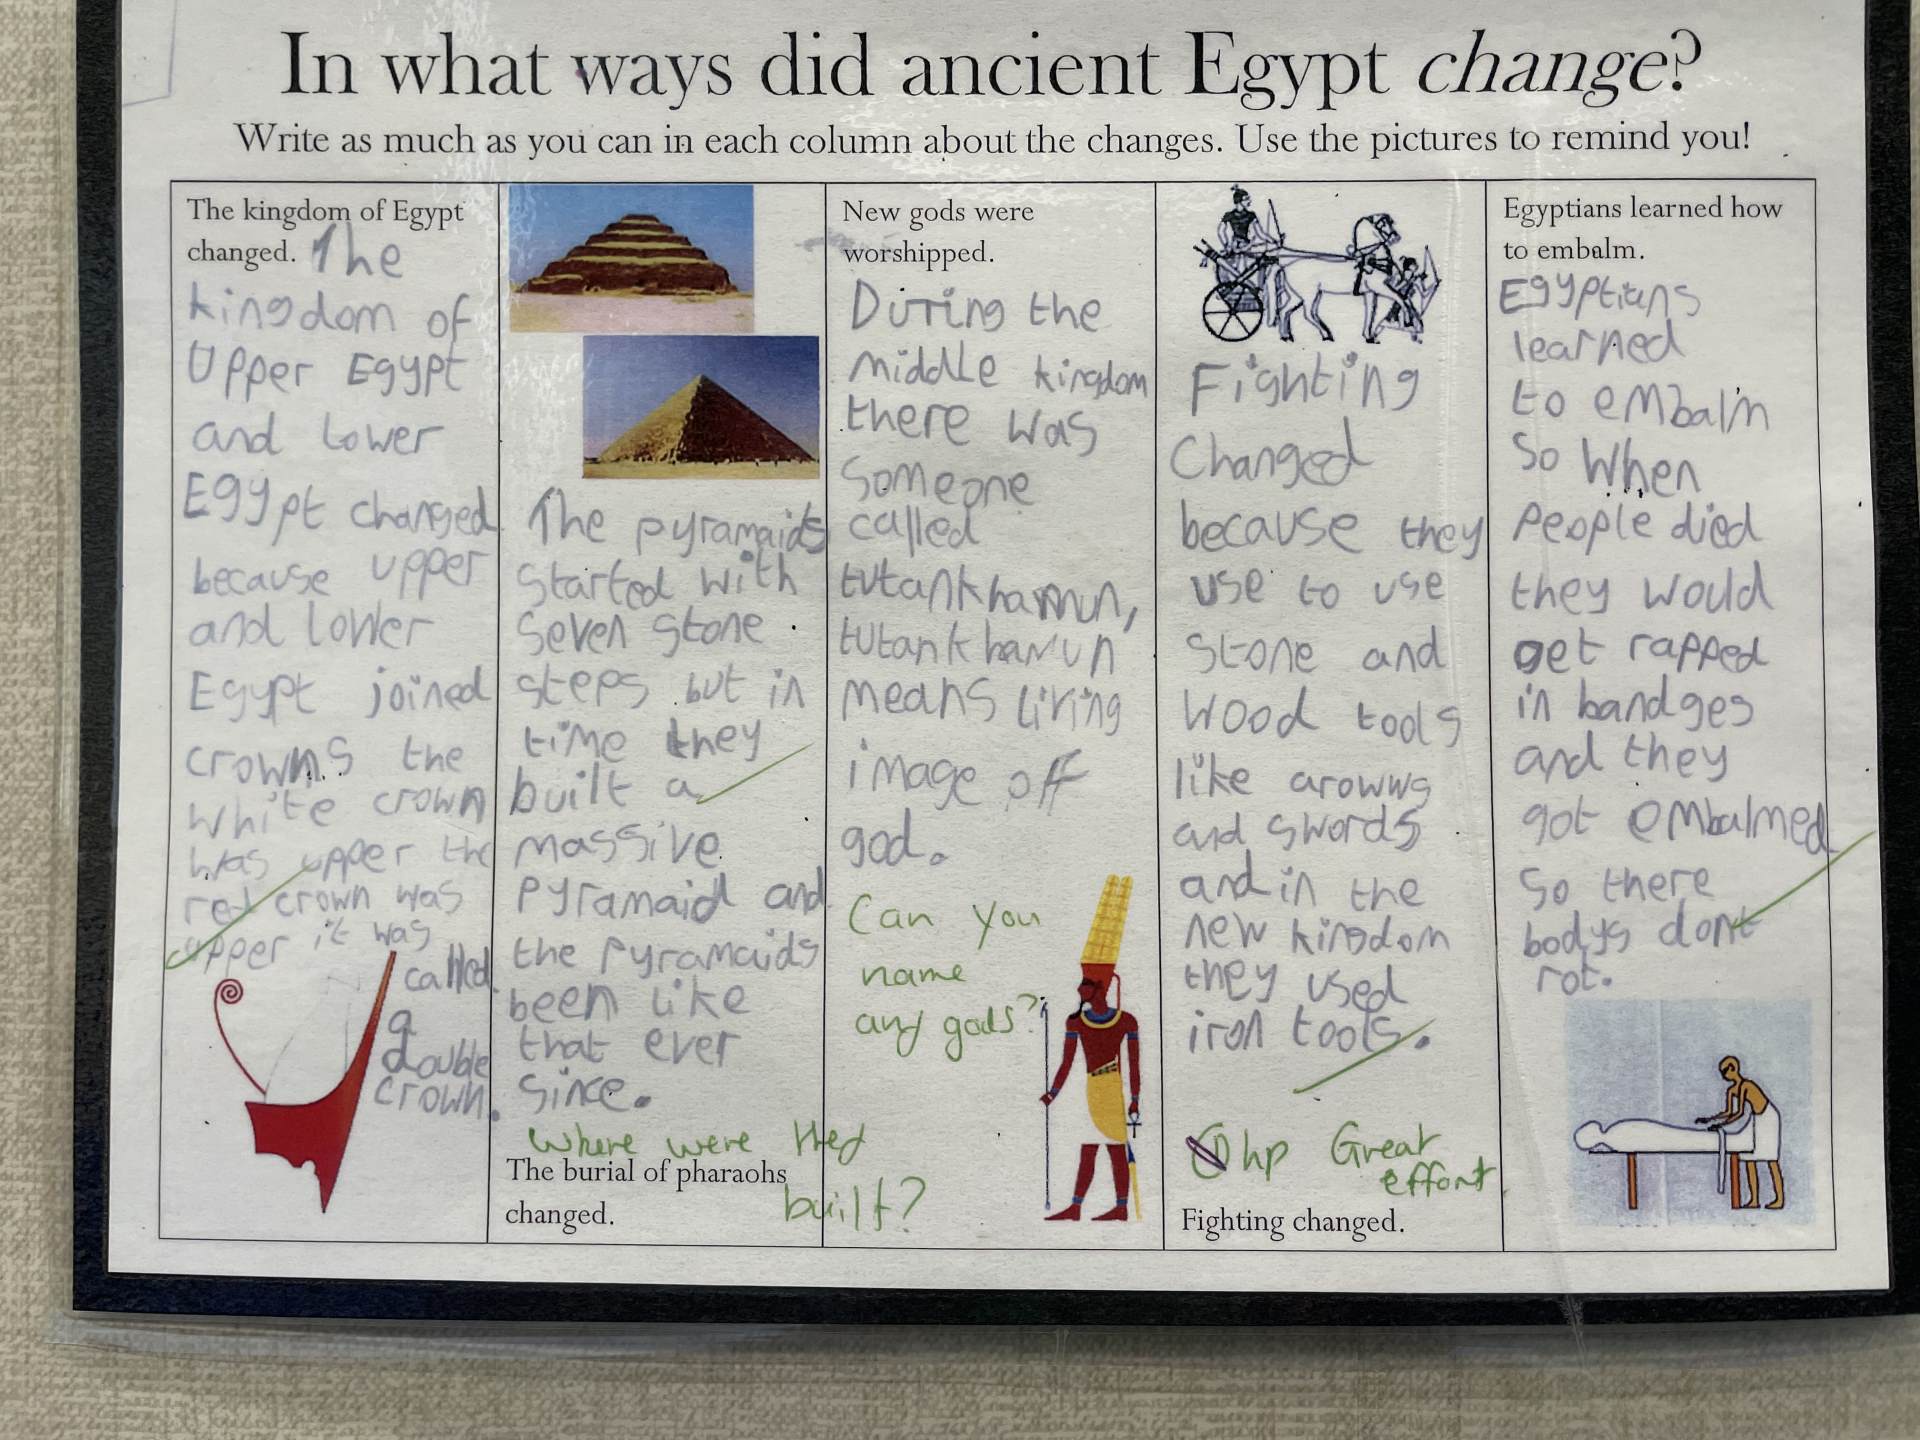 In what ways did ancient Egypt change?
Write as much as you can in each column about the changes. Use the pictures to remind you!
The kingdom of Egypt
changed. The
kingdom of
Upper Egypt
and Lower
Egypt changed
because upper
and lower
Egypt joined
crowns the
white crown
was upper the
red crown was
upper it was
called
a
double
crown.
The pyramaids
started with
seven stone
steps but in
time they
built a
massive
pyramaid and
the pyramaids
been like
that ever
since.
where were they
built?
The burial of pharaohs
changed.
New gods were
worshipped.
During the
middle kingdom
there was
someone
called
tutankhamun,
tutankhamun
means living
image off
god.
Can you
name
any gods?
Fighting
Changed
because they
use to use
stone and
wood tools
like arowws
and swords
and in the
new kingdom
they used
iron tools.
1hp Great
effort.
Fighting changed.
Egyptians learned how
to embalm.
Egyptians
learned
to embalm
so when
people died
they would
get rapped
in bandges
and they
got embalmed
so there
bodys dont
rot.